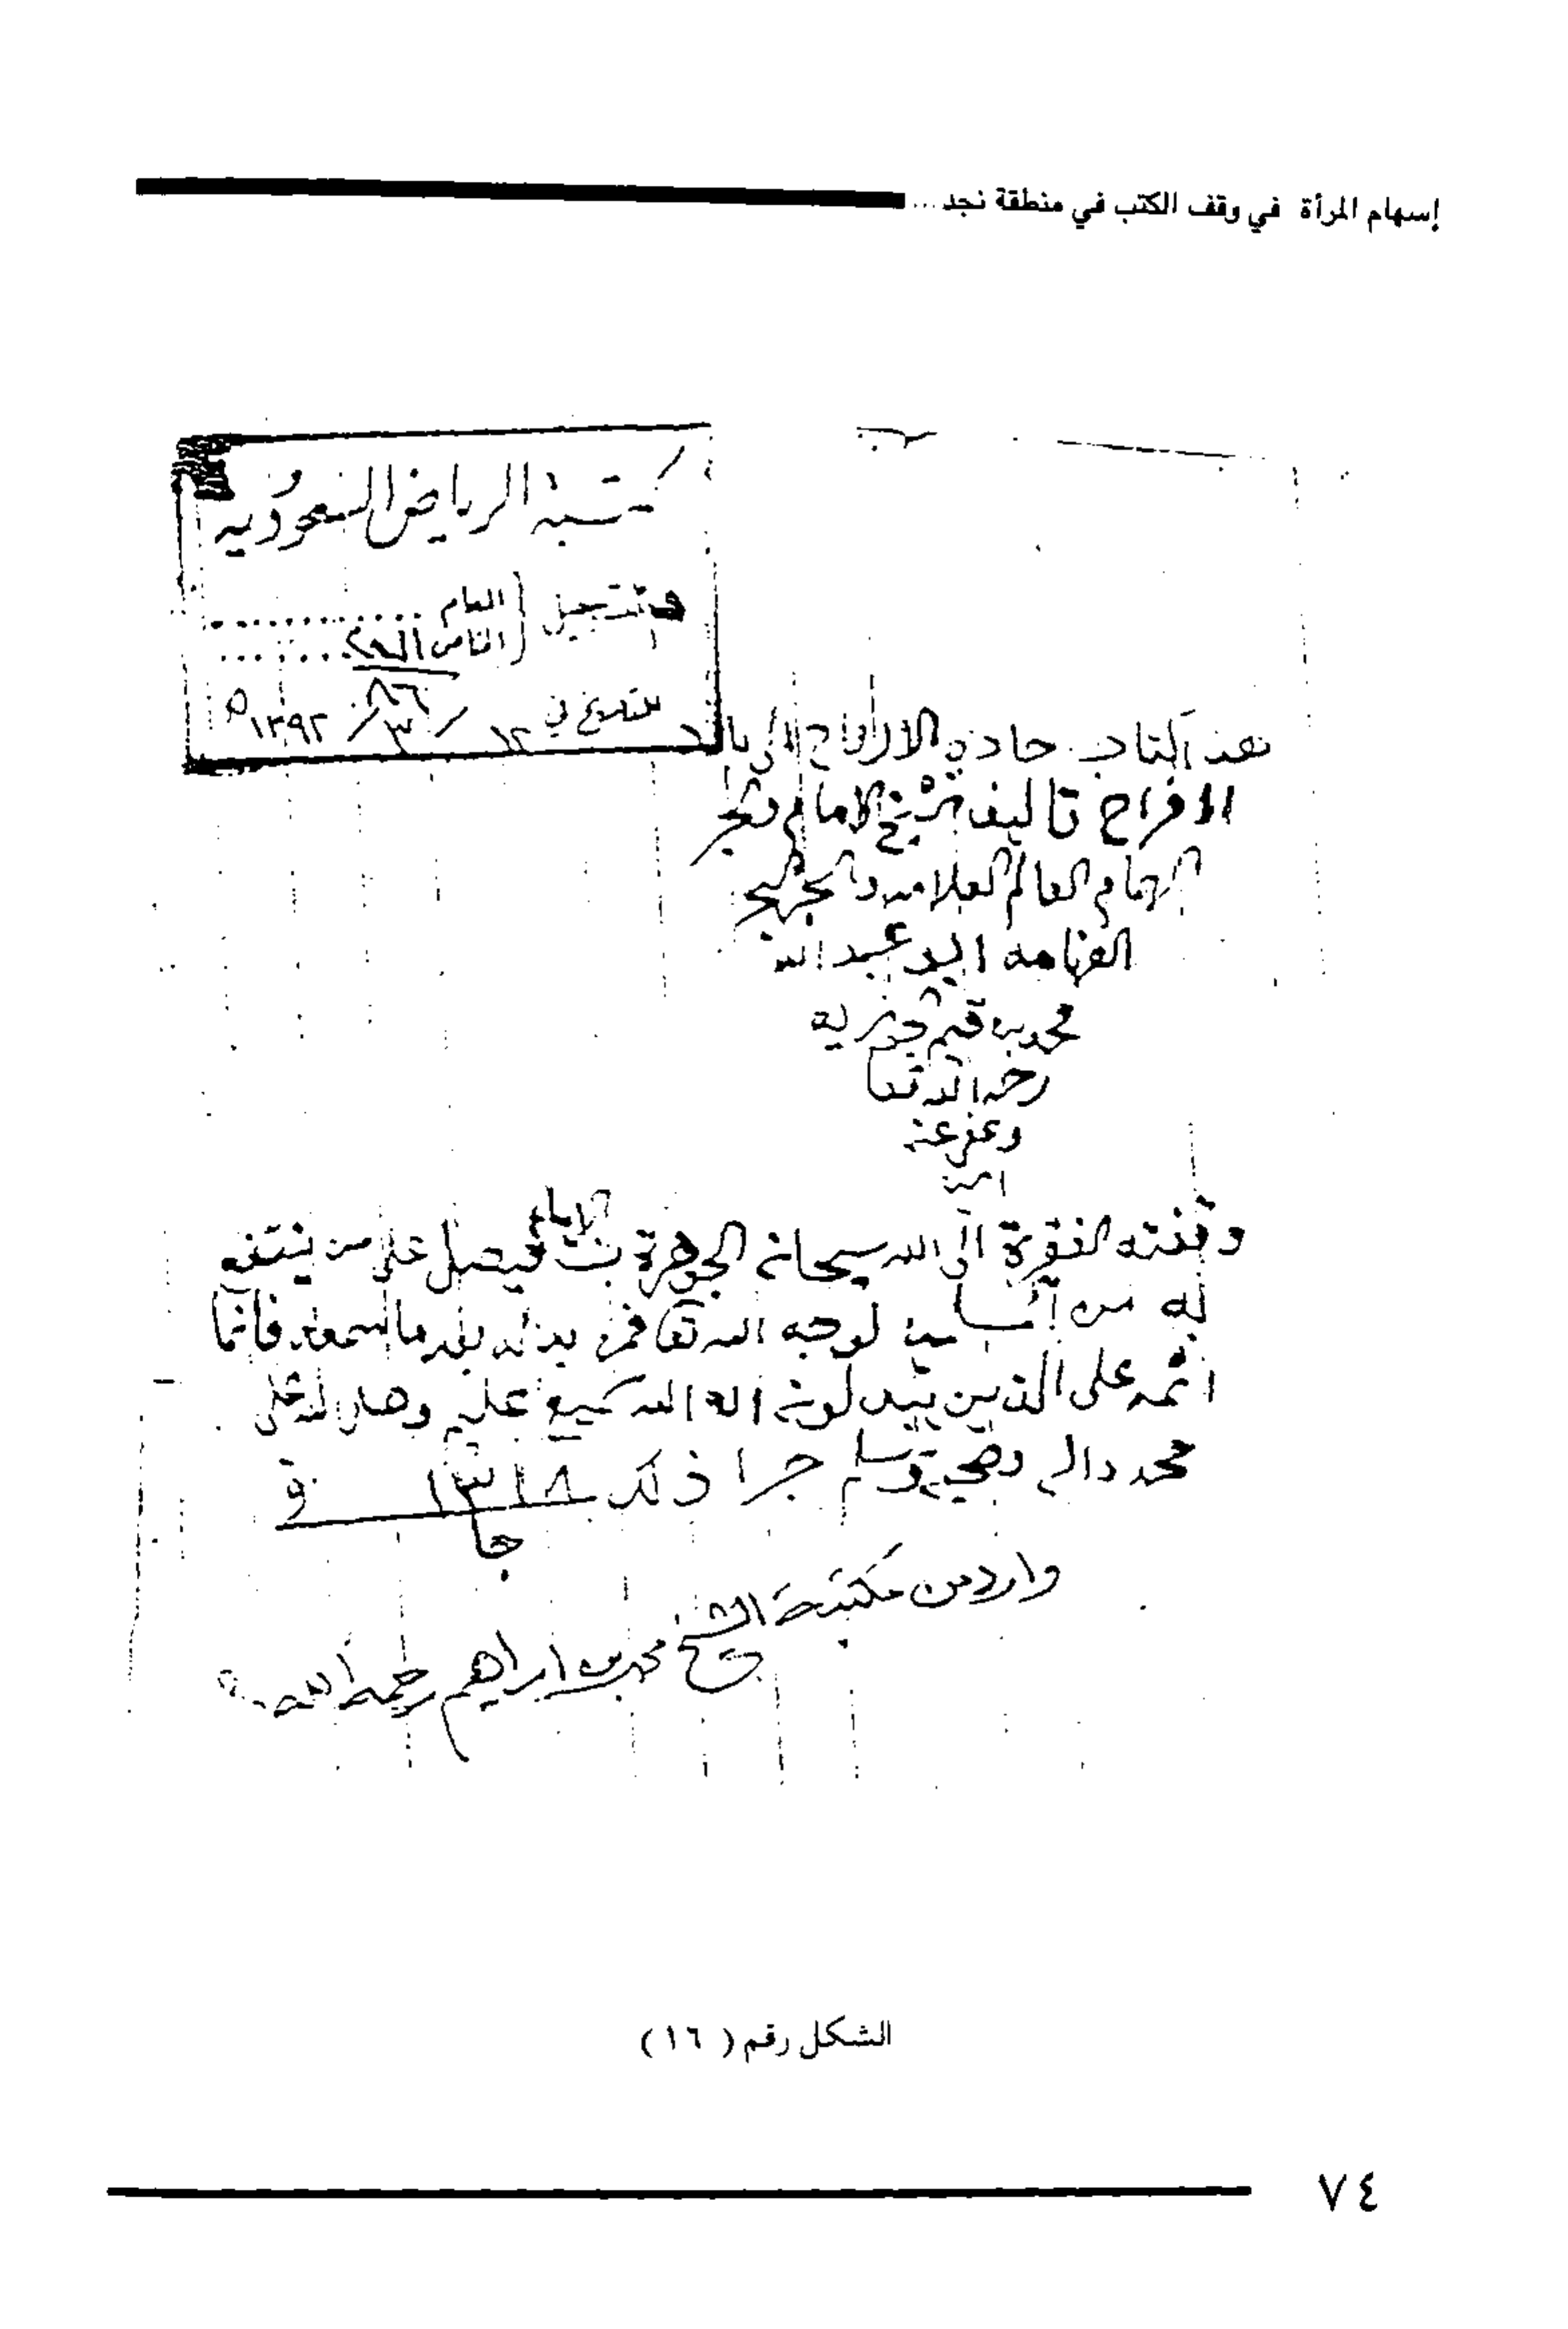 إسهام المرأة في وقف الكتب في منطقة نجد ...
مكتبة الرياض السعودية
التسجيل العام
الخاص
للتاريخ في ١٢ / ٣ / ١٣٩٢ ه
هذا الكتاب حادي الارواح الى بلاد
الافراح تاليف الشيخ الامام
الهمام العالم العلامه
الفهامه ابو عبد الله
محمد بن قيم جوزيه
رحمه الله تعا
وعفى عنه
امين
وقفته الفقيرة الى الله سبحانه الجوهرة بنت الامام فيصل على من ينتفع
به من لوجه الله تعا فمن بدله بعد ما سمعه فانما
اثمه على الذين يبدلونه ان الله سميع عليم وصلى الله على
محمد واله وصحبه وسلم جرا ذلك ١٣١٨ في
جا
وارد من مكتبة الشيخ
محمد بن ابراهيم رحمه الله
الشكل رقم ( ١٦ )
٧٤